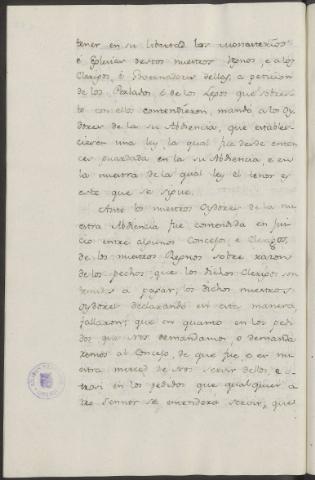 tener en su libertad las Monasterios
é Eglesias destos nuestros Regnos, e a los
Clerigos, é Procuradores dellos, a peticion
de los Perlados, é de los Legos que sobres-
to con ellos contendieron, mandó a los Oy-
dores de la su Abdiencia, que estables-
cieren una ley, la qual fue desde enton-
ces guardada en la su Abdiencia, e en
la nuestra de la qual ley el tenor es
este que se sigue.
Ante los nuestros Oydores de la nu-
estra Abdiencia fue contendida en jui-
cio entre algunos Concejos, e Clerigos,
de los nuestros Regnos sobre razon
de los pechos, que los dichos Clerigos son
tenudos a pagar, los dichos nuestros
Oydores declarando en esta manera,
fallaron, que en quanto en los pedi-
dos que Nos demandamos, o demanda
remos al Concejo, de que fue, o es nu-
estra merced de Nos servir dellos, e o-
trosi en los pedidos que qualquier o-
tro Sennor se entendera servir, que